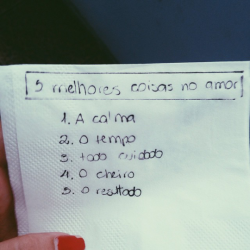 5 melhores coisas no amor
1. A calma
2. O tempo
3. todo cuidado
4. O cheiro
5. O resultado